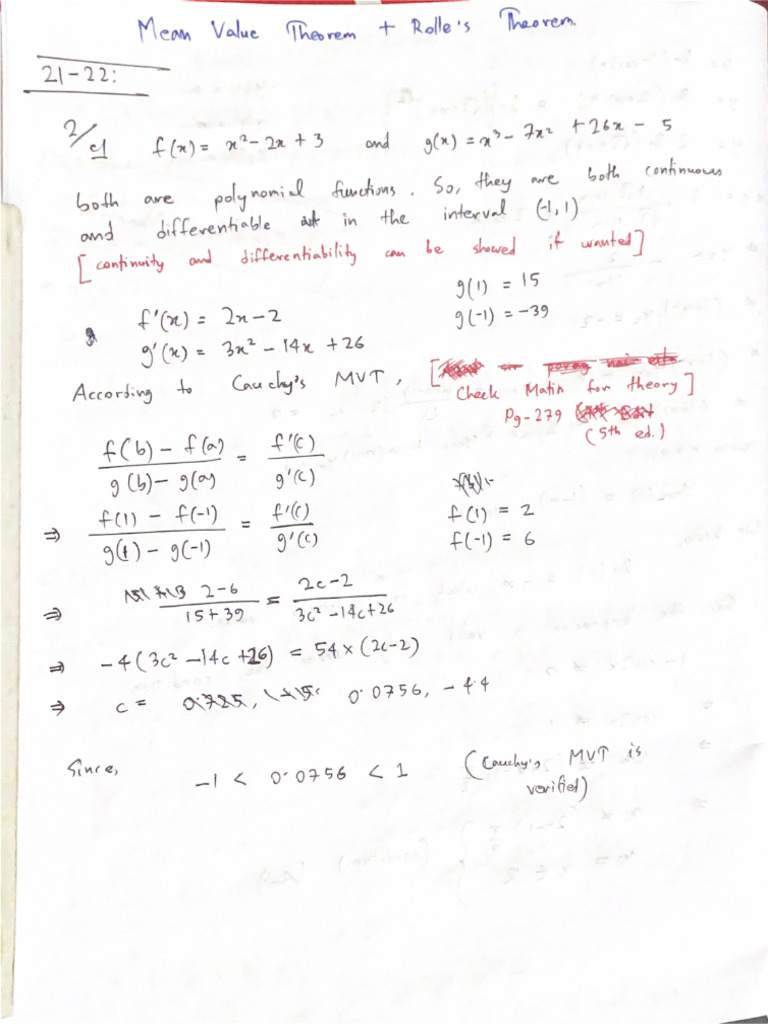 Mean Value Theorem + Rolle's Theorem.
21-22:
2/c1 f(x) = x² - 2x + 3 and g(x) = x³ - 7x² + 26x - 5
both are polynomial functions. So, they are both continuous
and differentiable in the interval (-1, 1)
[continuity and differentiability can be showed if wanted]
g(1) = 15
f'(x) = 2x - 2
g(-1) = -39
g'(x) = 3x² - 14x + 26
According to Cauchy's MVT,
[Check Matin for theory]
Pg-279
(5th ed.)
f(b) - f(a) / g(b) - g(a) = f'(c) / g'(c)
⇒ f(1) - f(-1) / g(1) - g(-1) = f'(c) / g'(c)
f(1) = 2
f(-1) = 6
⇒ 2-6 / 15+39 = 2c-2 / 3c² - 14c + 26
⇒ -4(3c² - 14c + 26) = 54 × (2c-2)
⇒ c = 0.0756, -4.4
Since, -1 < 0.0756 < 1 (Cauchy's MVT is
verified)